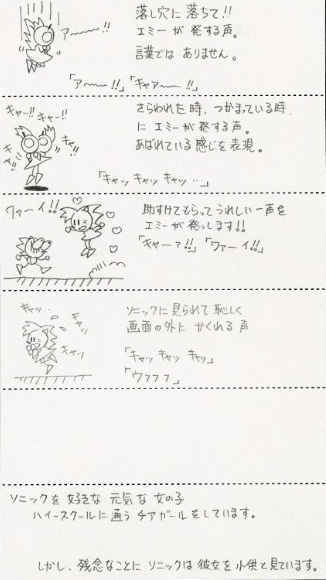 落し穴に落ちて!!
エミーが発する声。
言葉ではありません。
ア〜〜!!
「ア〜〜!!」「キャア〜〜!!」
キャー!! キャー!!
キャー!!
キャ!!
さらわれた時、つかまっている時、
にエミーが発する声。
あばれている感じを表現。
「キャッ キャッ キャッ …」
ワァーイ!!
助すけてもらってうれしい一声を
エミーが発っします!!
「キャーァ!!」「ワァーイ!!」
キャッ
キャッ
キャッ
ソニックに見られて恥しく
画面の外にかくれる声
「キャッ キャッ キャッ」
「ウフフフ」
ソニックを好きな元気な女の子
ハイースクールに通うチアガールをしています。
しかし、残念なことにソニックは彼女を小供と見ています。